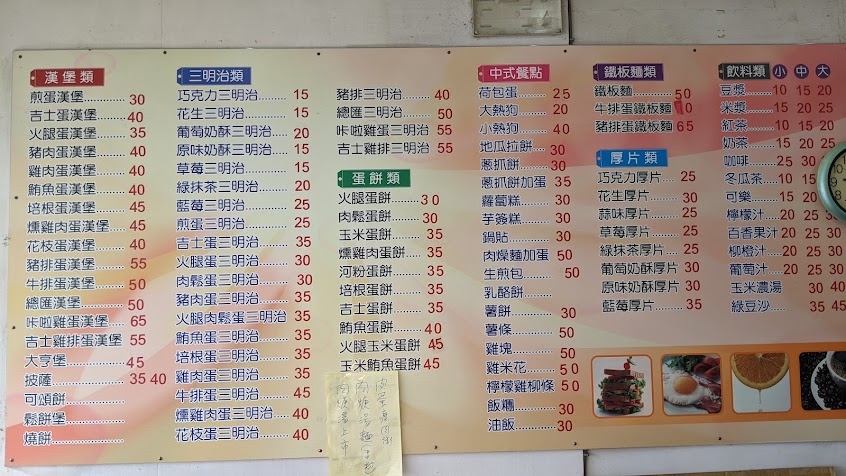 漢堡類
煎蛋漢堡............ 30
吉士蛋漢堡......... 40
火腿蛋漢堡......... 35
豬肉蛋漢堡......... 40
雞肉蛋漢堡......... 40
鮪魚蛋漢堡......... 40
培根蛋漢堡......... 45
燻雞肉蛋漢堡...... 45
花枝蛋漢堡......... 40
豬排蛋漢堡......... 55
牛排蛋漢堡......... 50
總匯漢堡............ 50
咔啦雞蛋漢堡...... 65
吉士雞排蛋漢堡 55
大亨堡............... 45
披薩.................. 35 40
可頌餅...............
鬆餅堡...............
燒餅..................
三明治類
巧克力三明治......... 15
花生三明治............ 15
葡萄奶酥三明治...... 20
原味奶酥三明治...... 15
草莓三明治............ 15
綠抹茶三明治......... 20
藍莓三明治............ 25
煎蛋三明治............ 25
吉士蛋三明治......... 35
火腿蛋三明治......... 30
肉鬆蛋三明治......... 30
豬肉蛋三明治......... 35
火腿肉鬆蛋三明治 35
鮪魚蛋三明治......... 35
培根蛋三明治......... 30
雞肉蛋三明治......... 35
牛排蛋三明治......... 45
燻雞肉蛋三明治...... 40
花枝蛋三明治......... 40
豬排三明治......... 40
總匯三明治......... 50
咔啦雞蛋三明治 55
吉士雞排三明治 55
蛋餅類
火腿蛋餅......... 30
肉鬆蛋餅......... 30
玉米蛋餅......... 35
燻雞肉蛋餅...... 35
河粉蛋餅......... 35
培根蛋餅......... 35
吉士蛋餅......... 35
鮪魚蛋餅......... 40
火腿玉米蛋餅 45
玉米鮪魚蛋餅 45
中式餐點
荷包蛋......... 25
大熱狗......... 20
小熱狗......... 40
地瓜拉餅...... 30
蔥抓餅......... 30
蔥抓餅加蛋 35
蘿蔔糕......... 30
芋簽糕......... 30
鍋貼............ 30
肉燥麵加蛋 50
生煎包......... 50
乳酪餅.........
薯餅............ 30
薯條............ 50
雞塊............ 50
雞米花......... 50
檸檬雞柳條 50
飯糰............ 30
油飯............ 30
鐵板麵類
鐵板麵............ 50
牛排蛋鐵板麵
豬排蛋鐵板麵 65
厚片類
巧克力厚片...... 25
花生厚片......... 25
蒜味厚片......... 25
草莓厚片......... 25
綠抹茶厚片...... 25
葡萄奶酥厚片 30
原味奶酥厚片 30
藍莓厚片......... 35
飲料類 小 中 大
豆漿......... 10 15 20
米漿......... 10 15 20
紅茶......... 10 15 20
奶茶......... 15 20
咖啡......... 25 30
冬瓜茶...... 10 15
可樂......... 15 20
檸檬汁...... 20 25 30
百香果汁 20 25 30
柳橙汁...... 20 25 30
葡萄汁...... 20 25 30
玉米濃湯 30
綠豆沙...... 35 45